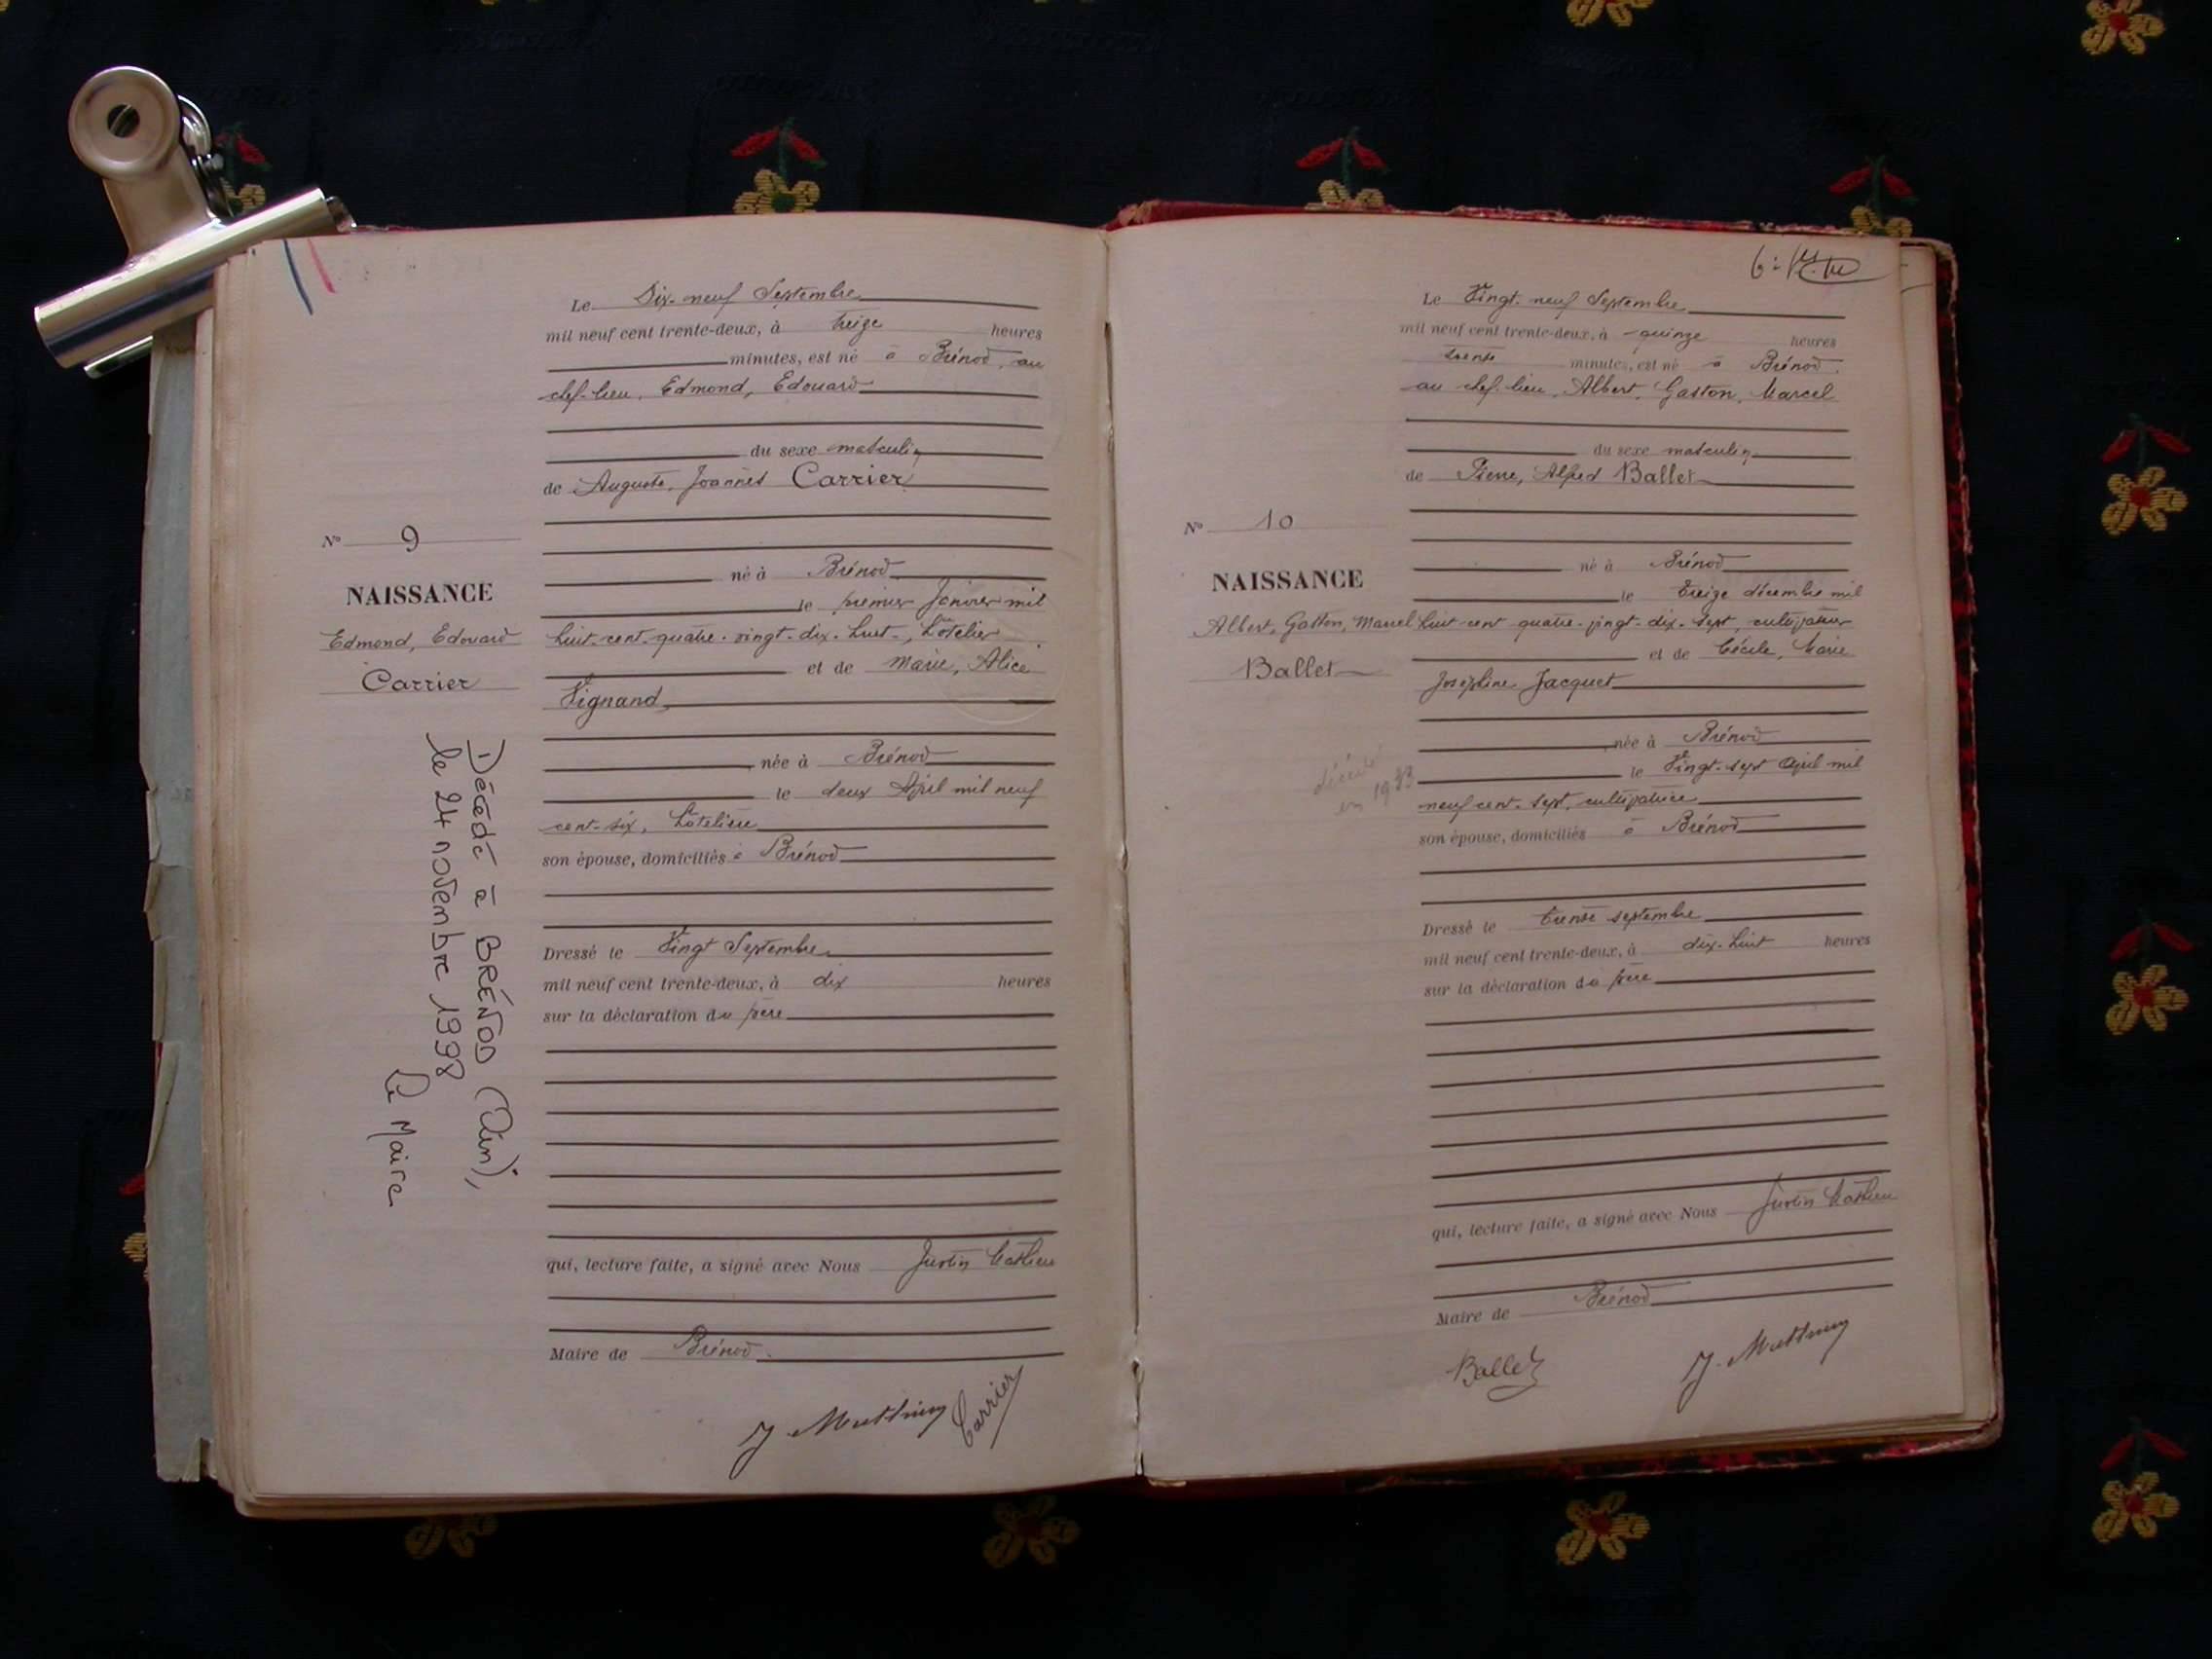 Le Dix-neuf Septembre
mil neuf cent trente-deux, à treize heures
minutes, est né à Brénod, au
chef-lieu, Edmond, Edouard
du sexe masculin
de Auguste, Joannès Carrier
N° 9
né à Brénod
NAISSANCE
le premier Janvier mil
Edmond, Edouard
huit-cent-quatre-vingt-dix-huit, hôtelier
et de Marie, Alice
Carrier
Vignand
née à Brénod
le deux Avril mil neuf
cent-six, hôtelière
son épouse, domiciliés à Brénod
Décédé à BRÉNOD (Ain),
le 24 novembre 1998
Le Maire
Dressé le Vingt Septembre
mil neuf cent trente-deux, à dix heures
sur la déclaration du père
qui, lecture faite, a signé avec Nous Justin Mathieu
Maire de Brénod.
J. Mathieu Carrier
Le Vingt-neuf Septembre
mil neuf cent trente-deux, à quinze heures
trente minutes, est né à Brénod,
au chef-lieu, Albert, Gaston, Marcel
du sexe masculin
de Pierre, Alfred Ballet
N° 10
né à Brénod
NAISSANCE
le treize décembre mil
Albert, Gaston, Marcel
huit-cent-quatre-vingt-dix-sept, cultivateur
et de Cécile, Marie
Ballet
Joséphine Jacquet
née à Brénod
le Vingt-sept Avril mil
décédé
en
neuf cent-sept, cultivatrice
son épouse, domiciliés à Brénod
Dressé le trente septembre
mil neuf cent trente-deux, à dix-huit heures
sur la déclaration du père
qui, lecture faite, a signé avec Nous Justin Mathieu
Maire de Brénod
Ballet J. Mathieu